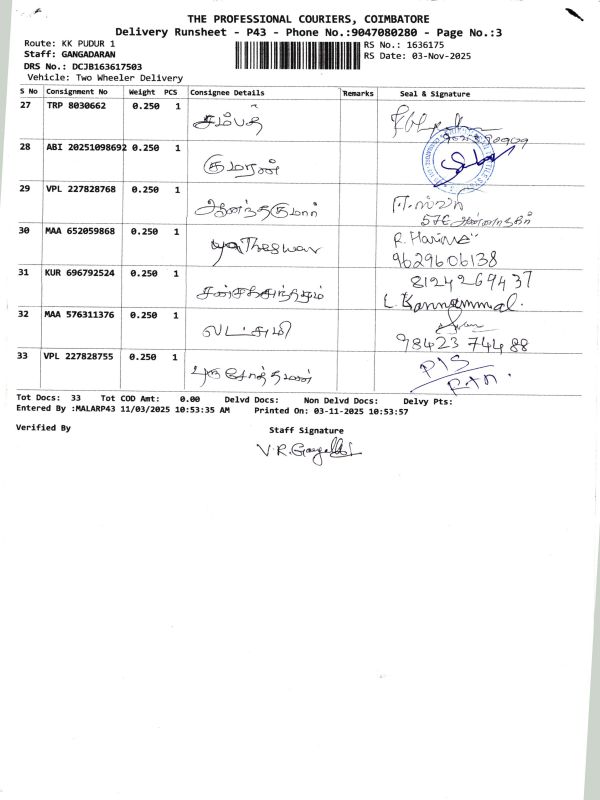 THE PROFESSIONAL COURIERS, COIMBATORE
Delivery Runsheet - P43 - Phone No.:9047080280 - Page No.:3
Route: KK PUDUR 1
RS No.: 1636175
Staff: GANGADARAN
RS Date: 03-Nov-2025
DRS No.: DCJB163617503
Vehicle: Two Wheeler Delivery
S No Consignment No Weight PCS Consignee Details Remarks Seal & Signature
27 TRP 8030662 0.250 1 சம்பத்
28 ABI 20251098692 0.250 1 குமரன்
29 VPL 227828768 0.250 1 ஆனந்தகுமார்
576
30 MAA 652059868 0.250 1
9629606138
31 KUR 696792524 0.250 1 8124269437
L. Kannammal.
32 MAA 576311376 0.250 1 லட்சுமி
98423 74488
33 VPL 227828755 0.250 1 புருசோத்தமன்
Tot Docs: 33 Tot COD Amt: 0.00 Delvd Docs: Non Delvd Docs: Delvy Pts:
Entered By :MALARP43 11/03/2025 10:53:35 AM Printed On: 03-11-2025 10:53:57
Verified By Staff Signature